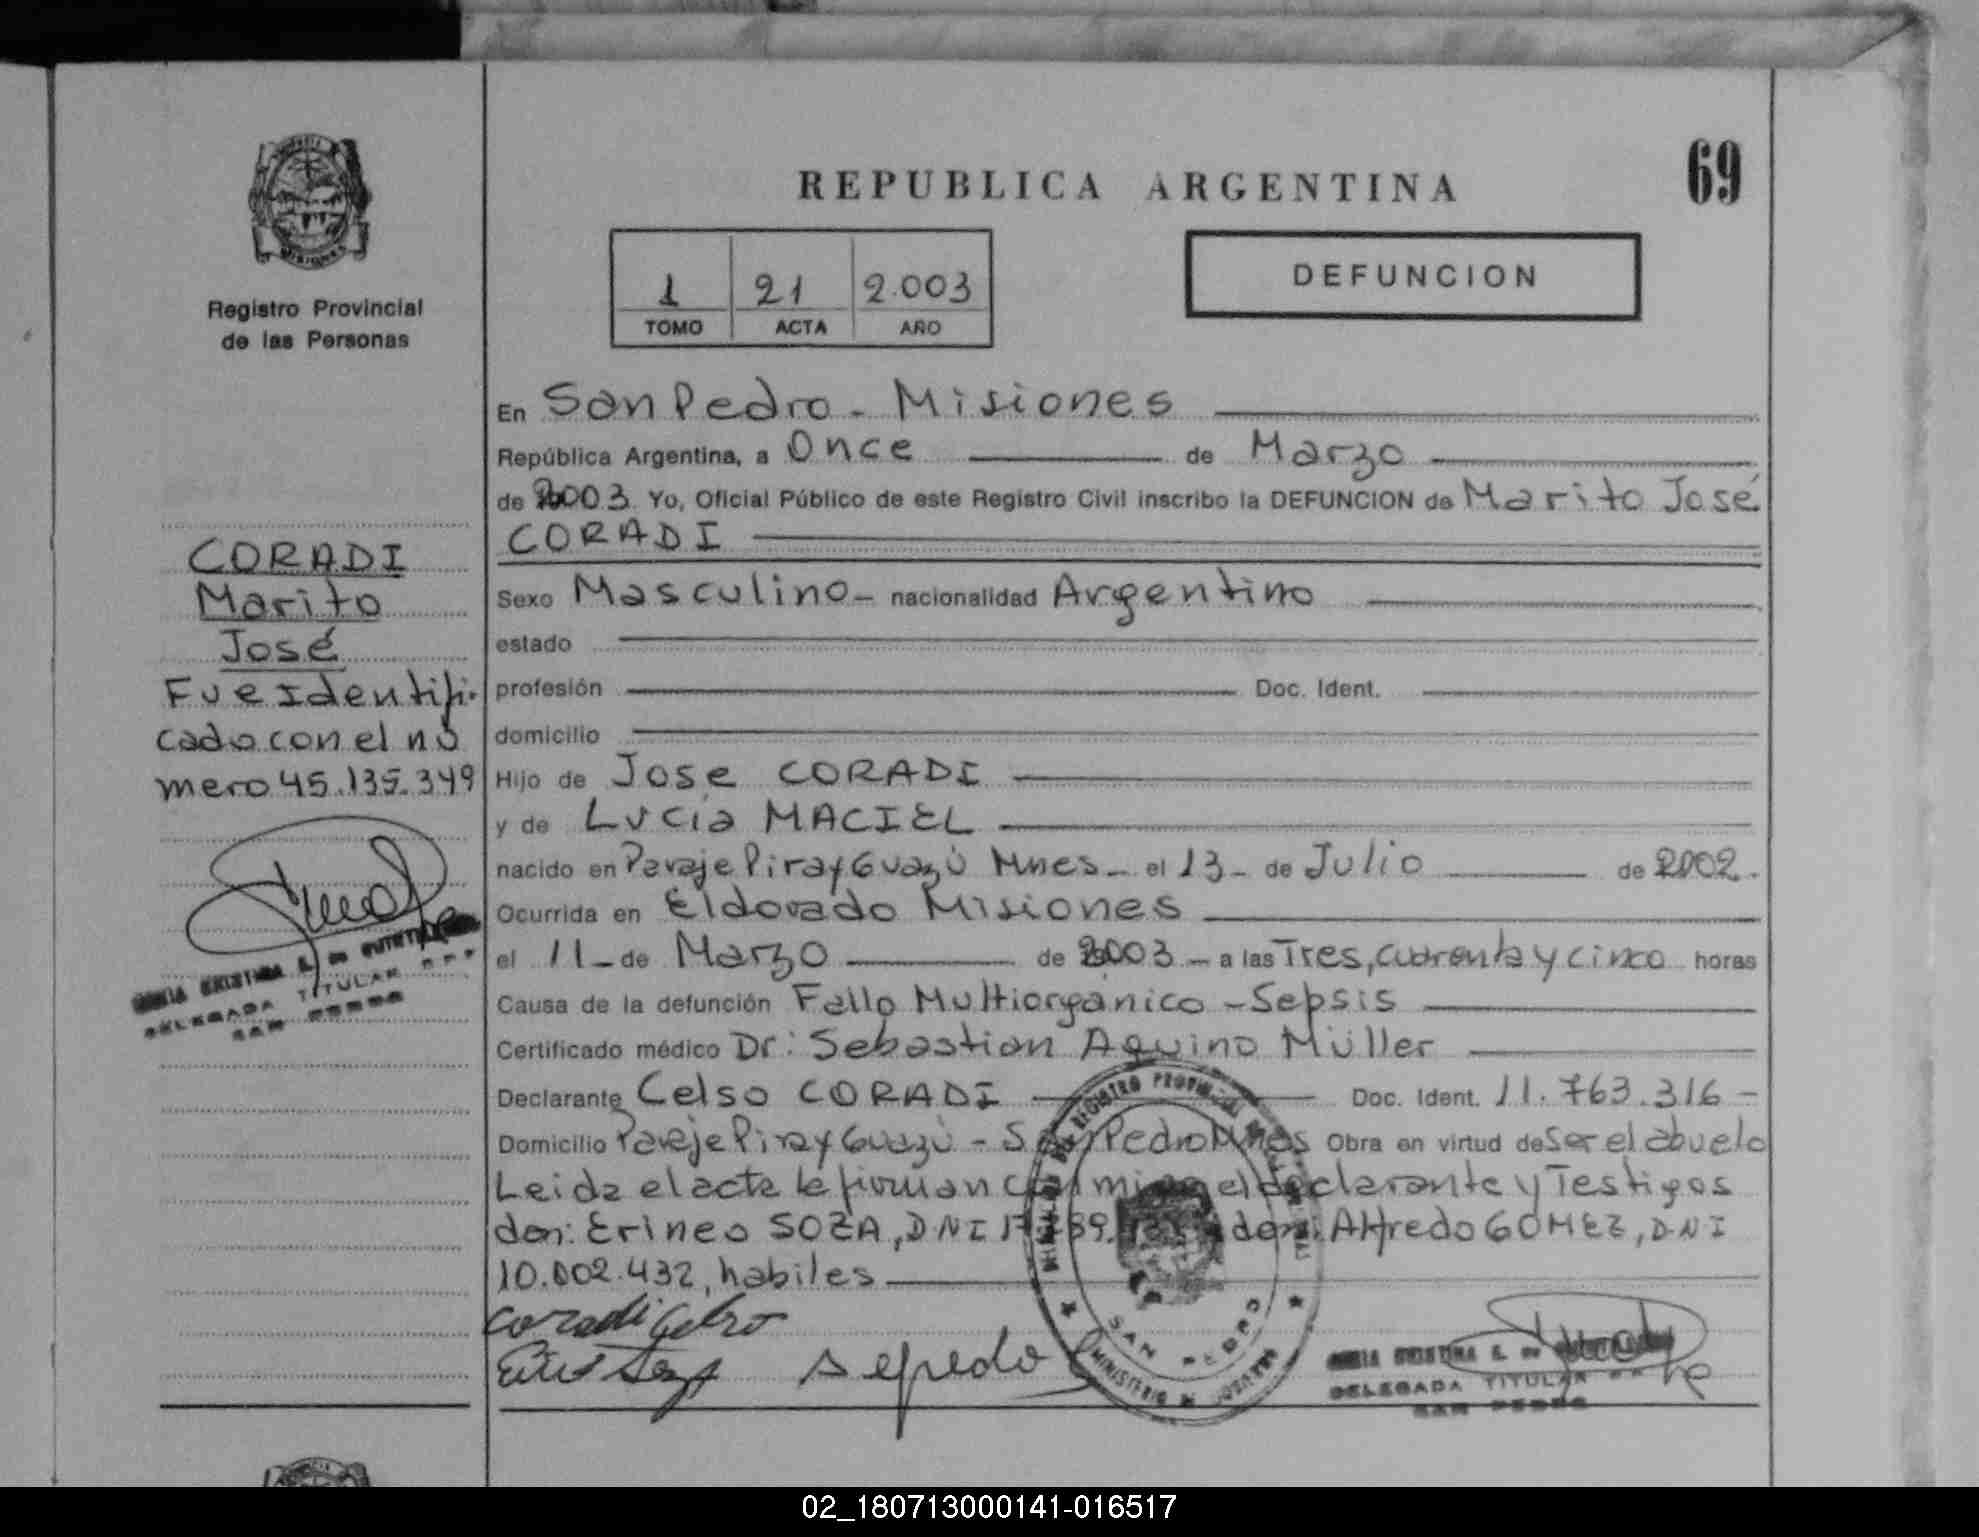 REPUBLICA ARGENTINA
69
Registro Provincial
de las Personas
1 21 2.003
TOMO ACTA AÑO
DEFUNCION
CORADI
Marito
José
Fue Identifi-
cado con el nú
mero 45.135.349
DELEGADA TITULAR
SAN PEDRO
En San Pedro - Misiones
República Argentina, a Once de Marzo
de 2003 Yo, Oficial Público de este Registro Civil inscribo la DEFUNCION de Marito José
CORADI
Sexo Masculino - nacionalidad Argentino
estado
profesión Doc. Ident.
domicilio
Hijo de Jose CORADI
y de Lucía MACIEL
nacido en Paraje Piray Guazú Mnes - el 13 - de Julio de 2002.
Ocurrida en Eldorado Misiones
el 11 - de Marzo de 2003 - a las Tres, cuarenta y cinco horas
Causa de la defunción Fallo Multiorgánico - Sepsis
Certificado médico Dr: Sebastian Aquino Müller
Declarante Celso CORADI Doc. Ident. 11.763.316 -
Domicilio Paraje Piray Guazú - San Pedro Mnes Obra en virtud de Ser el abuelo
Leida el acta la firman el declarante y Testigos
don: Erineo SOZA, DNI don: Alfredo GOMEZ, DNI
10.002.432, habiles
Coradi Celso
SAN PEDRO
DELEGADA TITULAR
SAN PEDRO
02_180713000141-016517